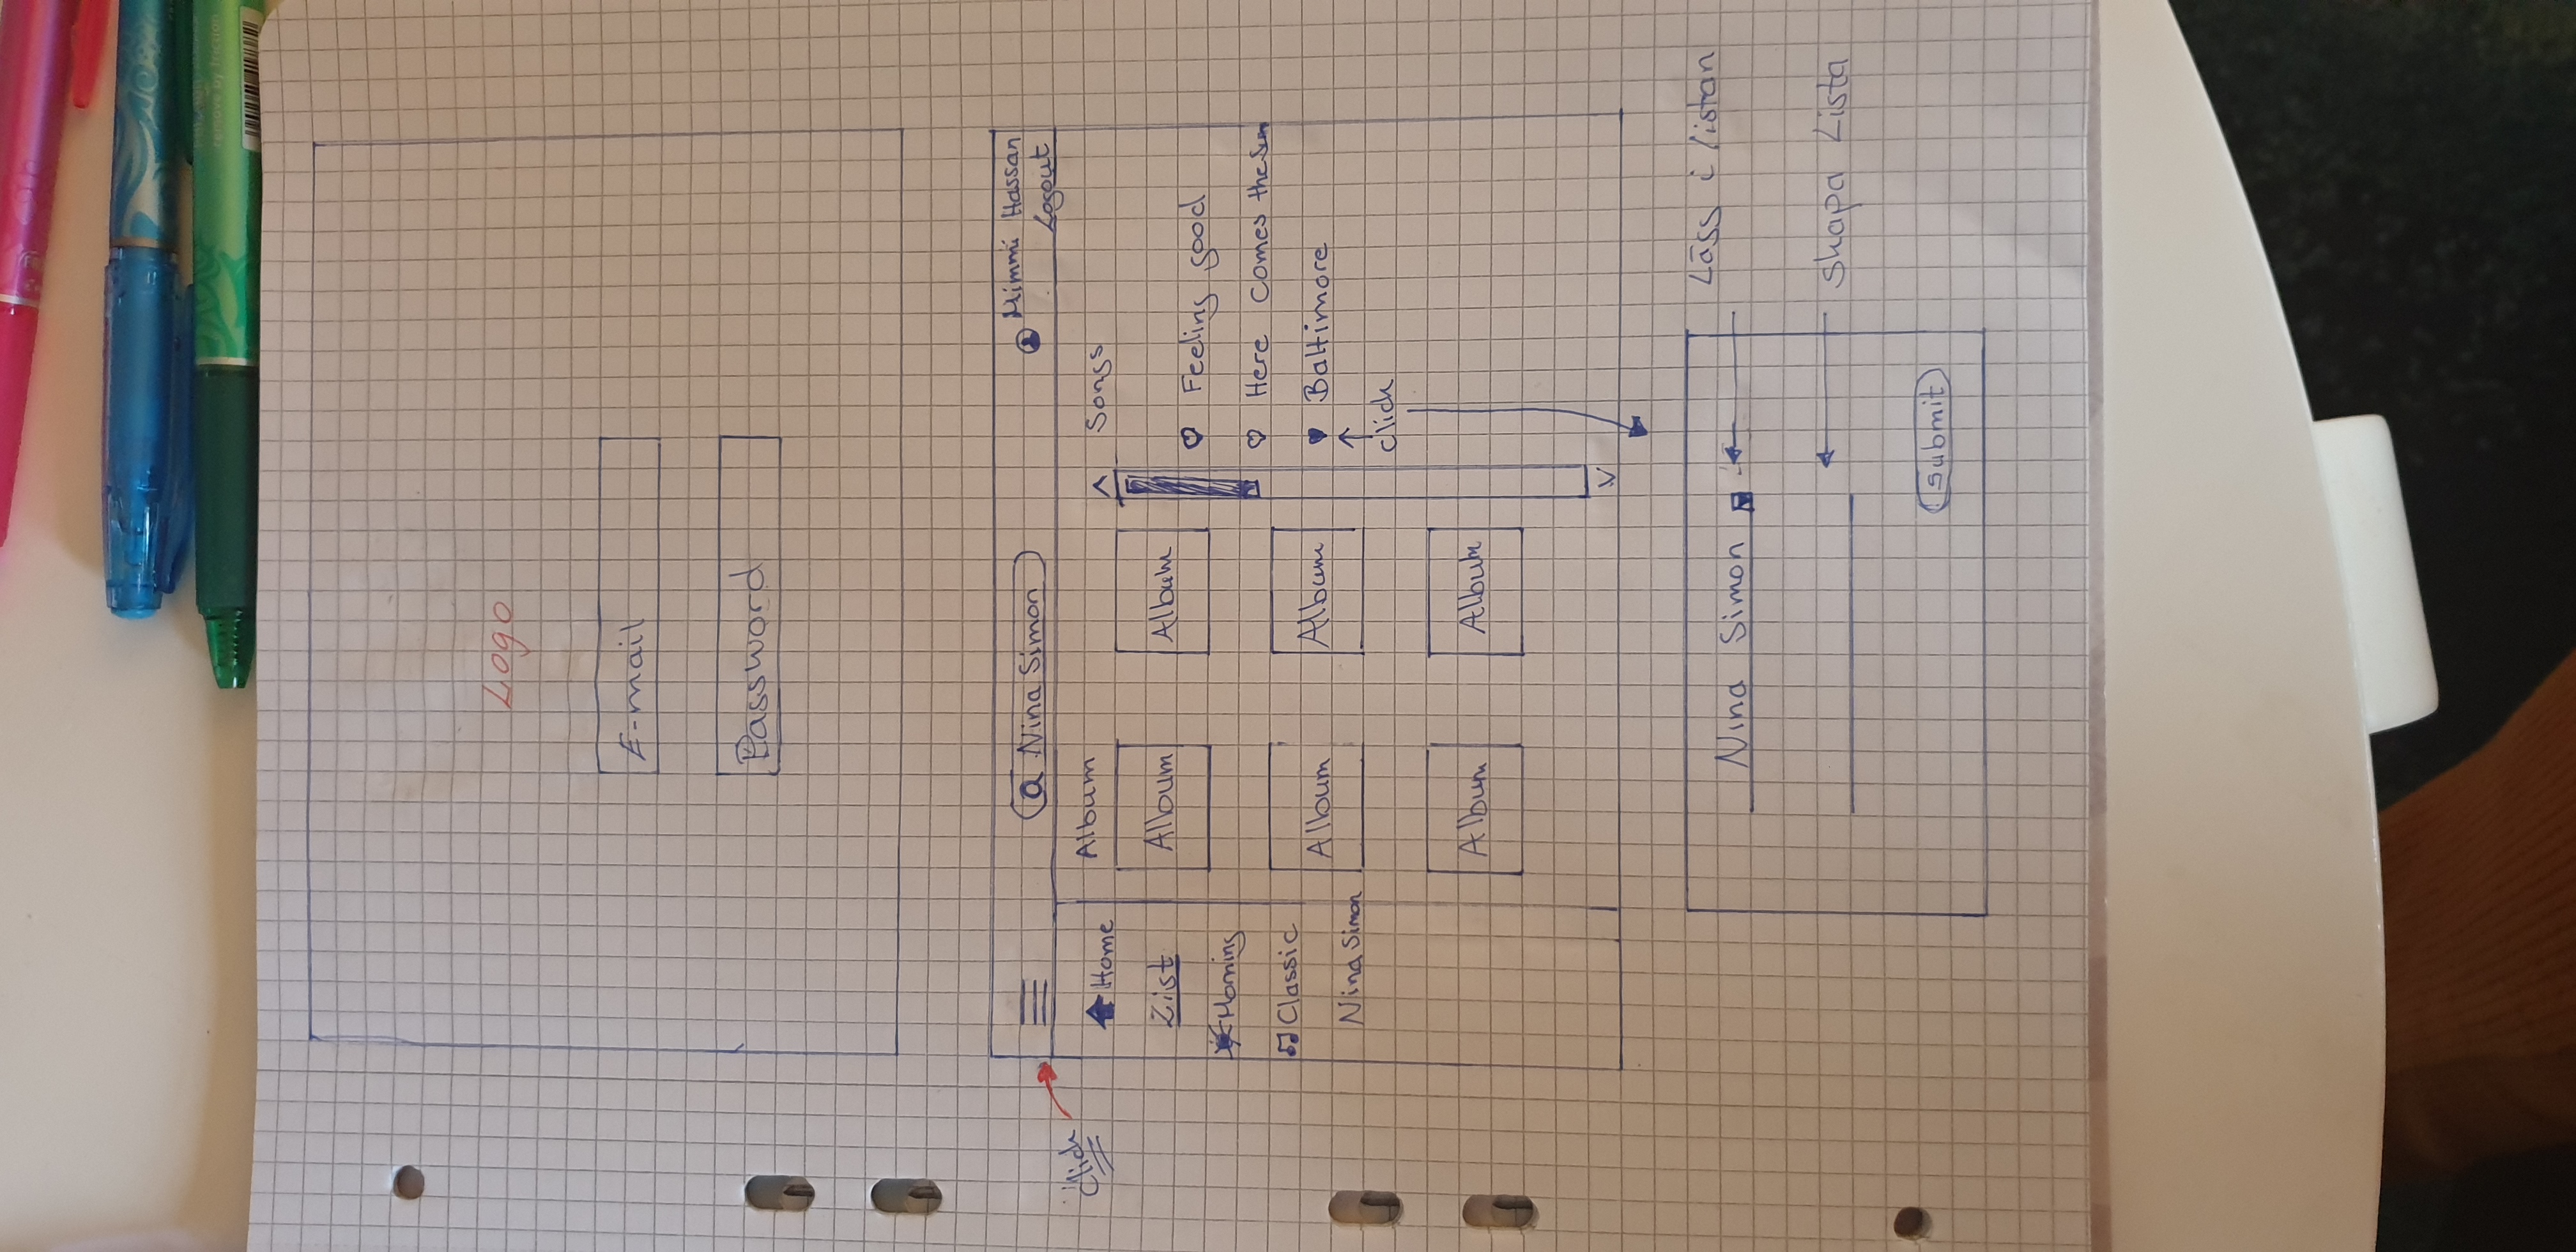 remove by friction
Logo
E-mail
Password
Click
Nina Simon
Mimmi Hassan
Logout
Home
List
Morning
Classic
Nina Simon
Album
Album
Album
Album
Album
Album
Album
Songs
Feeling good
Here Comes the Sun
Baltimore
click
Nina Simon
Läss i listan
Skapa Lista
Submit